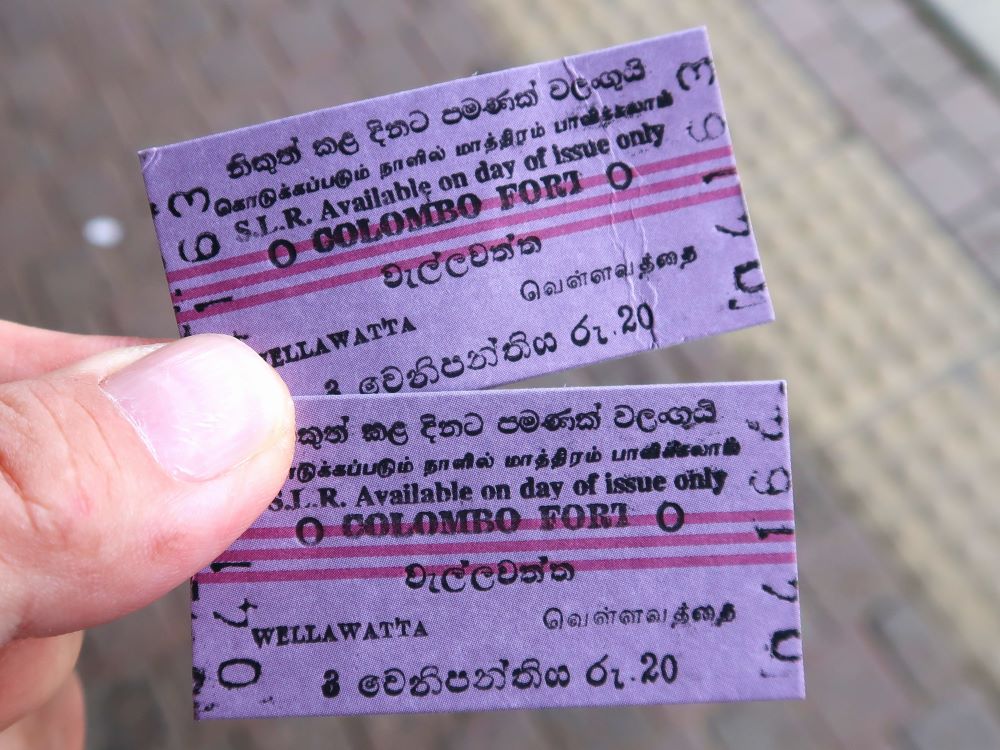 නිකුත් කළ දිනට පමණක් වලංගුයි
கொடுக்கப்படும் நாளில் மாத்திரம் பாவிக்கலாம்
S.L.R. Available on day of issue only
O COLOMBO FORT O
වැල්ලවත්ත
வெள்ளவத்தை
WELLAWATTA
3 වෙනිපන්තිය රු. 20
කුත් කළ දිනට පමණක් වලංගුයි
டுக்கப்படும் நாளில் மாத்திரம் பாவிக்கலாம்
S.L.R. Available on day of issue only
O COLOMBO FORT O
වැල්ලවත්ත
WELLAWATTA வெள்ளவத்தை
3 වෙනිපන්තිය රු. 20